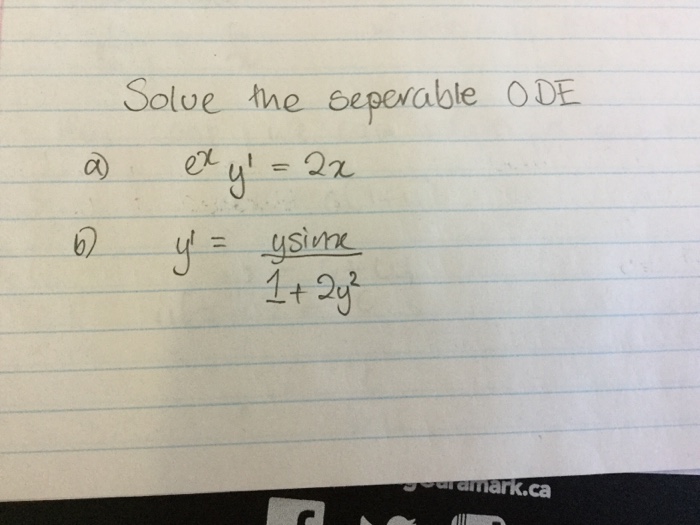 Solve the seperable ODE
a) eˣ y' = 2x
b) y' = ysinx / 1 + 2y²
amark.ca